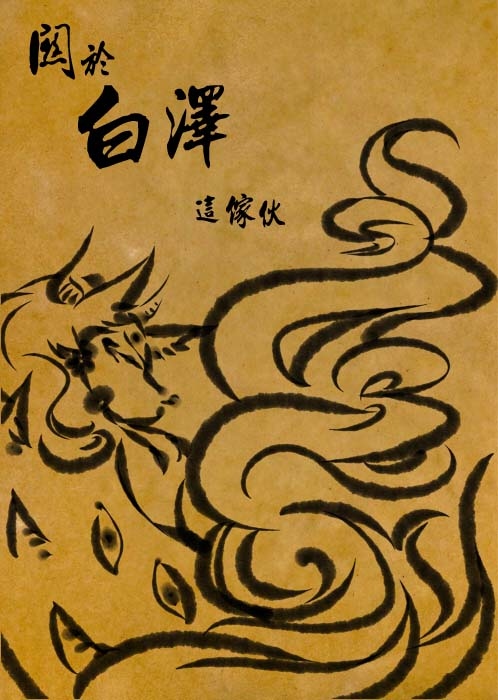 關於
白澤
這傢伙